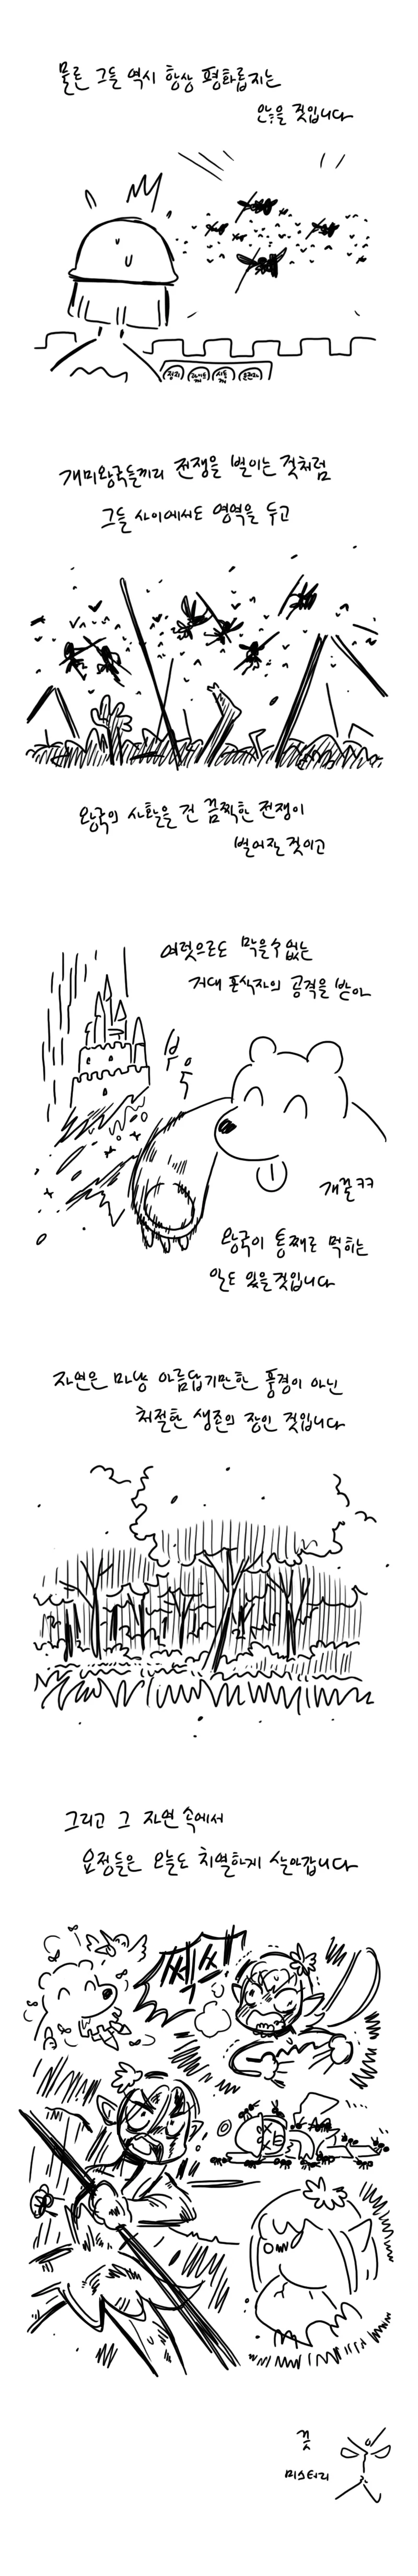 물론 그들 역시 항상 평화롭지는
않을 것입니다
개미왕국들끼리 전쟁을 벌이는 것처럼
그들 사이에서도 영역을 두고
왕국의 사활을 건 끔찍한 전쟁이
벌어질 것이고
여럿으로도 막을수 없는
거대 포식자의 공격을 받아
부욱
개꿀ㅋㅋ
왕국이 통째로 먹히는
일도 있을 것입니다
자연은 마냥 아름답기만한 풍경이 아닌
처절한 생존의 장인 것입니다
그리고 그 자연 속에서
요정들은 오늘도 치열하게 살아갑니다
쎅쓰!
끗
미스터리